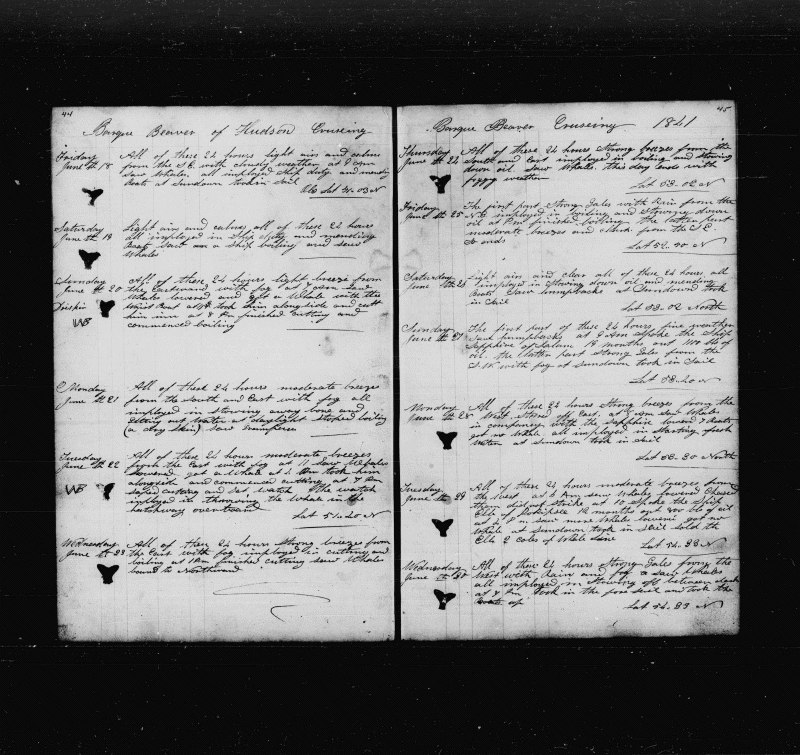 44
Barque Beaver of Hudson Cruseing
Friday All of these 24 hours light airs and calms
June th 18 from the S.E. with cloudy weather at 9 am
saw Whales all imployed Ship duty and mending
boats at Sundown took in Sail
Lat 51..03 N
Saturday Light airs and calms all of these 24 hours
June th 19 all imployed in Ship duty and mending
Boats saw a Ship boiling and saw
Whales
Sunday All of these 24 hours light breeze from
June th 20 the Eastward with fog at 7 am saw
Whales lowered and got a Whale with the
Waist Boat at took him alongside and cutt
him inn at 8 Pm finished cutting and
WB commenced boiling
Monday All of these 24 hours moderate breeze
June th 21 from the South and East with fog all
imployed in Stowing away bone and
getting out water at daylight Stoped boiling
(a dry skin) saw
Tuesday All of these 24 hours moderate breezes
June th 22 from the East with fog at 11 saw Whales
lowered got a Whale at 2 Pm took him
alongside and commenced cutting at 7 Pm
WB cutting and set watch the watch
imployed in throwing the Whale in the
hatchway overboard
Lat 51..20 N
Wednesday All of these 24 hours Strong breezes from
June th 23 the East with fog imployed in cutting and
boiling at 10 am finished cutting saw Whales
bound to Northward
45
Barque Beaver Cruseing 1841
Thursday All of these 24 hours Strong breezes from the
June th 24 South and East imployed in boiling and Stowing
down oil saw Whales this day ends with
foggy weather
Lat 53..02 N
Friday The first part Strong Gales with Rain from the
June th 25 N.E. imployed in boiling and Stowing down
oil at Pm finished boiling the latter part
moderate breezes and clear from the S.E.
So ends
Lat 52..30 N
Saturday Light airs and clear all of these 24 hours all
June th 26 imployed in Stowing down oil and mending
Boats saw humpbacks at Sundown took
in Sail
Lat 53..02 North
Sunday The first part of these 24 hours fine weather
June th 27 saw humpbacks at 9 Am spoke the Ship
Sapphire of Salem 18 months out 1100 bbls of
oil the latter part Strong Gales from the
S.W. with fog at sundown took in Sail
Lat 53..20 N
Monday All of these 24 hours Strong breezes from the
June th 28 West Stered off East at am saw Whales
in company with the Sapphire lowered 3 boats
got no Whale all imployed in Starting fresh
Water at Sundown took in Sail
Lat 53..30 North
Tuesday All of these 24 hours moderate breezes from
June th 29 the West at 6 Am saw Whales lowered Chased
them did not strike at 10 spoke the Ship
Elb of Pokepsee 12 months out 800 bbls of oil
at 2 Pm saw more Whales lowered got no
Whale at sundown took in sail sold the
Elb 2 coles of Whale Line
Lat 54..28 N
Wednesday All of these 24 hours Strong Gales from the
June th 30 West with Rain and fog saw Whales
all imployed in Stowing off between decks
at 7 Pm took in the fore Sail and took the
boats up
Lat 54..23 N